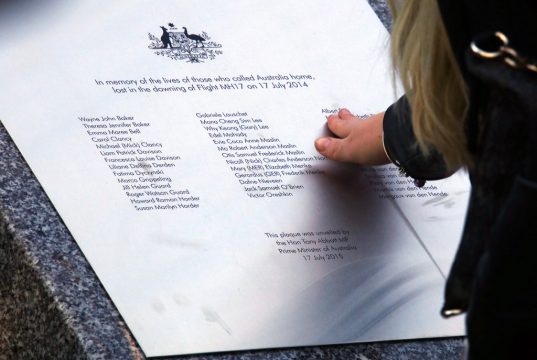 In memory of the lives of those who called Australia home,
lost in the downing of Flight MH17 on 17 July 2014
Wayne John Baker
Theresa Jennifer Baker
Emma Maree Bell
Carol Clancy
Michael (Mick) Clancy
Liam Patrick Davison
Francesca Louise Davison
Liliane Derden
Fatima Dyczynski
Marco Grippeling
Jill Helen Guard
Roger Watson Guard
Howard Ramon Horder
Susan Marilyn Horder
Gabriele Lauschet
Mona Cheng Sim Lee
Why Keong (Gary) Lee
Edel Mahady
Evie Coco Anne Maslin
Mo Robert Anderson Maslin
Otis Samuel Frederick Maslin
Nicoll (Nick) Charles Anderson
Mary (MER) Elizabeth
Gerardus (GER)
Dafne Nieveen
Jack Samuel O'Brien
Victor Oreshkin
van den Hende
Margaux van den Hende
This plaque was unveiled by
the Hon Tony Abbott MP
Prime Minister of Australia
17 July 2015